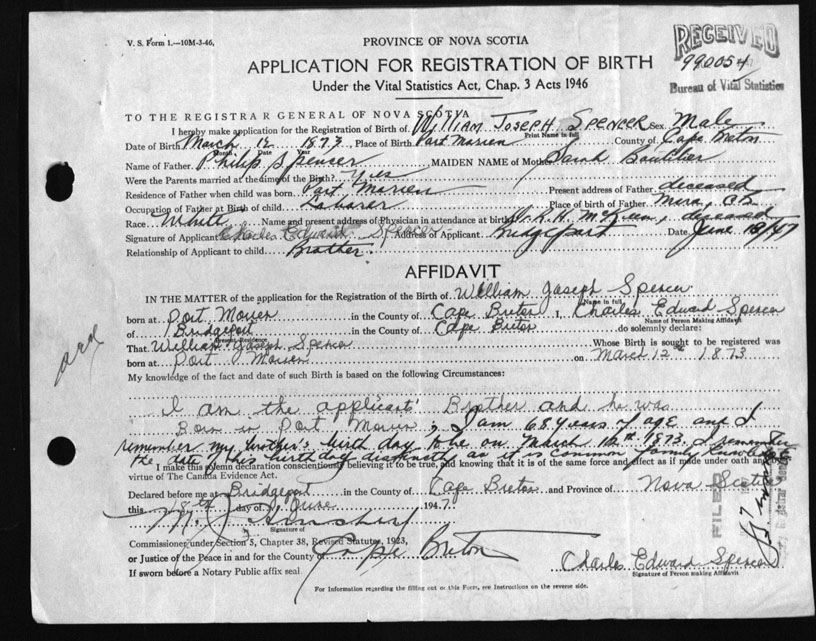 V. S. Form 1.—10M-3-46,
RECEIVED
990054
Bureau of Vital Statistics
PROVINCE OF NOVA SCOTIA
APPLICATION FOR REGISTRATION OF BIRTH
Under the Vital Statistics Act, Chap. 3 Acts 1946
TO THE REGISTRAR GENERAL OF NOVA SCOTIA
I hereby make application for the Registration of Birth of William Joseph Spencer Sex Male
Print Name in full
Date of Birth March 12 1873, Place of Birth Port Morien County of Cape Breton
Month Date Year
Name of Father Philip Spencer MAIDEN NAME of Mother Sarah Boutilier
Were the Parents married at the time of the Birth? Yes
Residence of Father when child was born Port Morien Present address of Father deceased
Occupation of Father at Birth of child Laborer Place of birth of Father Mira, CB
Race White Name and present address of Physician in attendance at birth deceased
Signature of Applicant Charles Edward Spencer Address of Applicant Bridgeport Date June 18/47
Relationship of Applicant to child Brother.
AFFIDAVIT
IN THE MATTER of the application for the Registration of the Birth of William Joseph Spencer
Name in full
born at Port Morien in the County of Cape Breton I, Charles Edward Spencer
Name of Person Making Affidavit
of Bridgeport in the County of Cape Breton do solemnly declare:
Present Residence
That William Joseph Spencer Whose Birth is sought to be registered was
born at Port Morien on March 12th 1873
My knowledge of the fact and date of such Birth is based on the following Circumstances:
I am the applicant' Brother and he was
Born in Port Morien, I am 68 years of age and I
remember my brother's birth day to be on March 12th 1873. I remember
the date of his birthday distinctly as it is common family knowledge
I make this solemn declaration conscientiously believing it to be true, and knowing that it is of the same force and effect as if made under oath and by
virtue of The Canada Evidence Act.
Declared before me at Bridgeport in the County of Cape Breton and Province of Nova Scotia
this 18th day of June 1947.
Signature of
Commissioner under Section 5, Chapter 38, Revised Statutes, 1923,
or Justice of the Peace in and for the County of Cape Breton
If sworn before a Notary Public affix seal
Charles Edward Spencer
Signature of Person making Affidavit
FILED
For Information regarding the filling out of this Form, see Instructions on the reverse side.